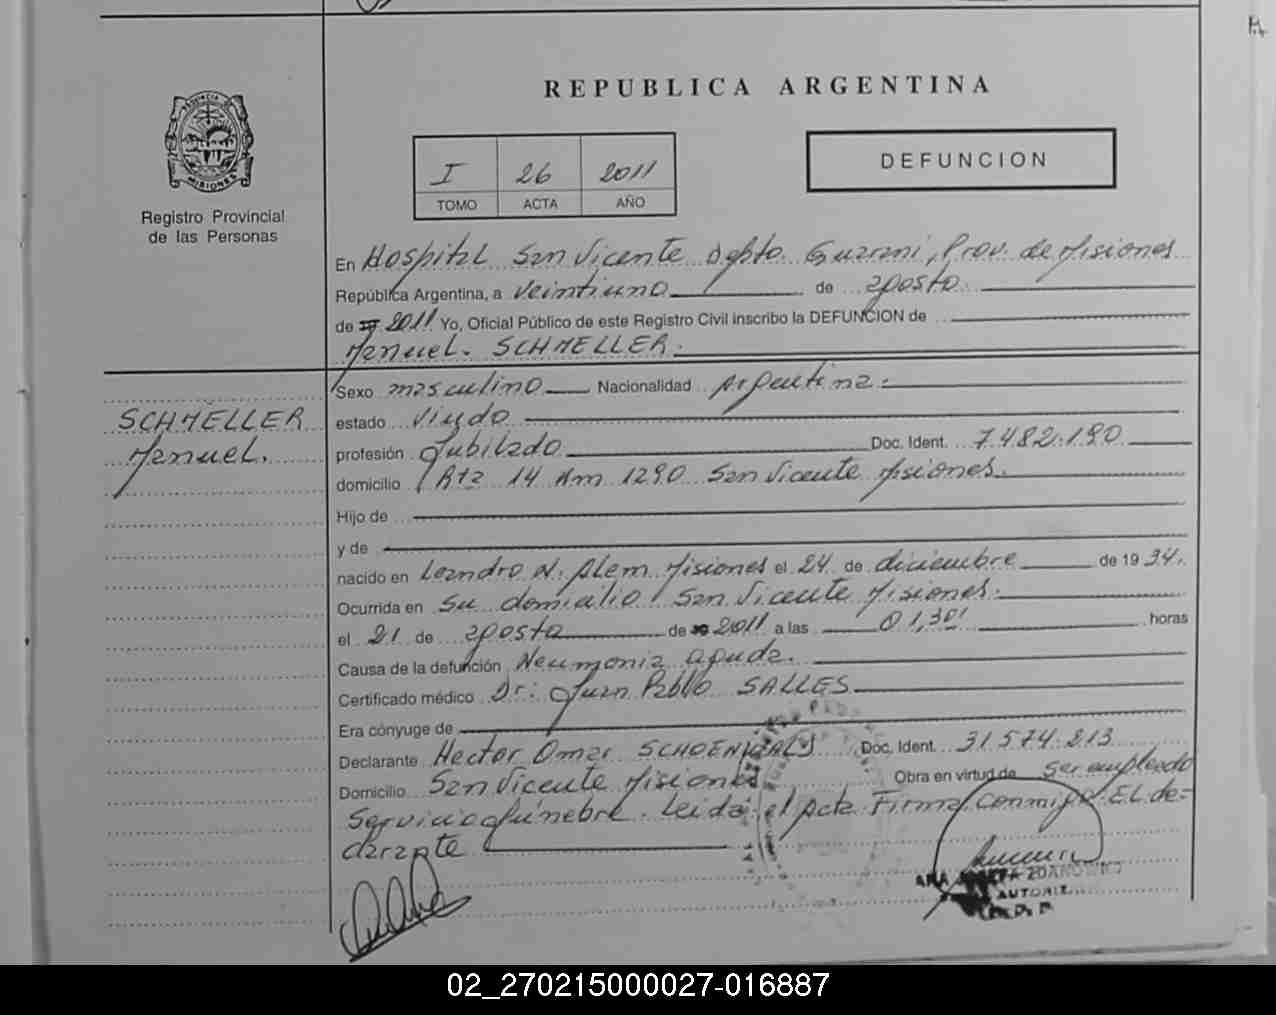 REPUBLICA ARGENTINA
PROVINCIA DE
MISIONES
Registro Provincial
de las Personas
I 26 2011
TOMO ACTA AÑO
DEFUNCION
En Hospital San Vicente Depto. Guarani, Prov. de Misiones
República Argentina, a veintiuno de agosto
de 2011 Yo, Oficial Público de este Registro Civil inscribo la DEFUNCION de
Manuel. SCHMELLER.
Sexo masculino Nacionalidad Argentina.
SCHMELLER
Manuel.
estado Viudo
profesión Jubilado Doc. Ident. 7.482.190
domicilio Rta 14 Km 1290 San Vicente Misiones.
Hijo de
y de
nacido en Leandro N. Alem Misiones el 24 de diciembre de 1934.
Ocurrida en su domicilio San Vicente Misiones.
el 21 de agosto de 2011 a las 01,30' horas
Causa de la defunción Neumonia aguda.
Certificado médico Dr: Juan Pablo SALLES
Era cónyuge de
Declarante Hector Omar Doc. Ident. 31.574.213
Domicilio San Vicente Misiones Obra en virtud de ser empleado
Servicio fúnebre. Leida el Acta Firma conmigo EL de=
clarante
ANA
AUTORIZ
02_270215000027-016887